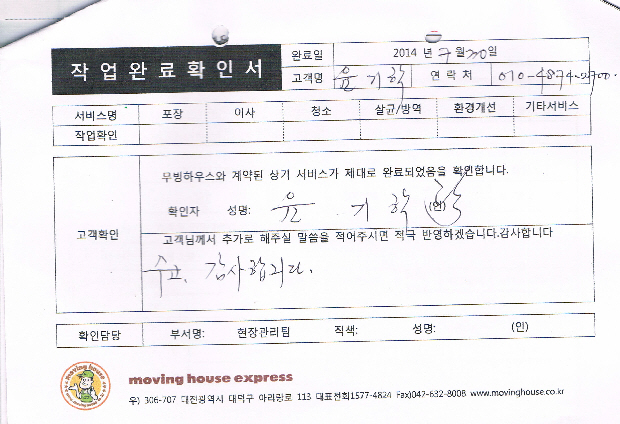 작업완료확인서
완료일 2014 년 7 월 20 일
고객명 윤 기학 연 락 처 010-4874-2700.
서비스명 포장 이사 청소 살균/방역 환경개선 기타서비스
작업확인
무빙하우스와 계약된 상기 서비스가 제대로 완료되었음을 확인합니다.
확인자 성명: 윤 기 학 (인)
고객확인
고객님께서 추가로 해주실 말씀을 적어주시면 적극 반영하겠습니다.감사합니다
수고. 감사합니다.
확인담당 부서명: 현장관리팀 직색: 성명: (인)
moving house express
우) 306-707 대전광역시 대덕구 아리랑로 113 대표전화1577-4824 Fax)042-632-8008 www.movinghouse.co.kr